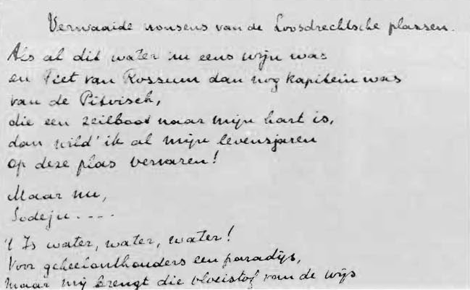 Verwaaide nonsens van de Loosdrechtsche plassen.
Als al dit water nu eens wijn was
en Piet van Rossum dan nog kapitein was
van de Pitvisch,
die een zeilboot naar mijn hart is,
dan wild' ik al mijn levensjaren
op deze plas vervaren!
Maar nu,
Sodeju....
't Is water, water, water!
Voor geheelonthouders een paradijs,
Maar mij brengt die vloeistof van de wijs